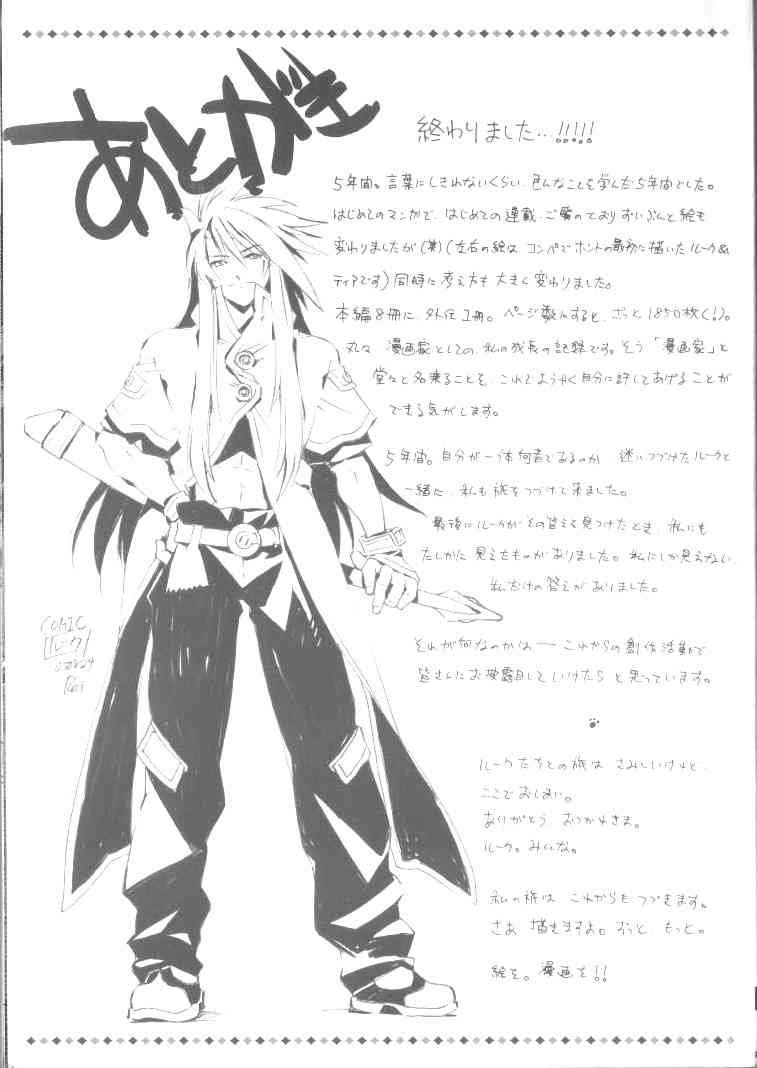 あとがき
終わりました…!!!!!
5年間。言葉にしきれないくらい、色んなことを学んだ5年間でした。
はじめてのマンガで、はじめての連載、ご覧のとおりずいぶんと絵も
変わりましたが(笑)(左右の絵は コンペでホントの最初に描いたルーク&
ティアです)同時に考え方も大きく変わりました。
本編8冊に、外伝1冊。ページ数にすると、ざっと1850枚(!)。
丸々 漫画家としての、私の成長の記録です。そう「漫画家」と
堂々と名乗ることを、これでようやく自分に許してあげることが
できる気がします。
5年間。自分が一体何者であるのか 迷いつづけたルークと
一緒に、私も旅をつづけて来ました。
最後にルークがその答えを見つけたとき、私にも
たしかに見えたものがありました。私にしか見えない
私だけの答えがありました。
それが何なのかは── これからの創作活動で
皆さんにお披露目していけたら と思っています。
ルークたちとの旅は さみしいけれど、
ここでおしまい。
ありがとう おつかれさま。
ルーク。みんな。
私の旅は これからもつづきます。
さあ 描きますよ。ずっと もっと。
絵を。漫画を!!
COMIC
ルーク